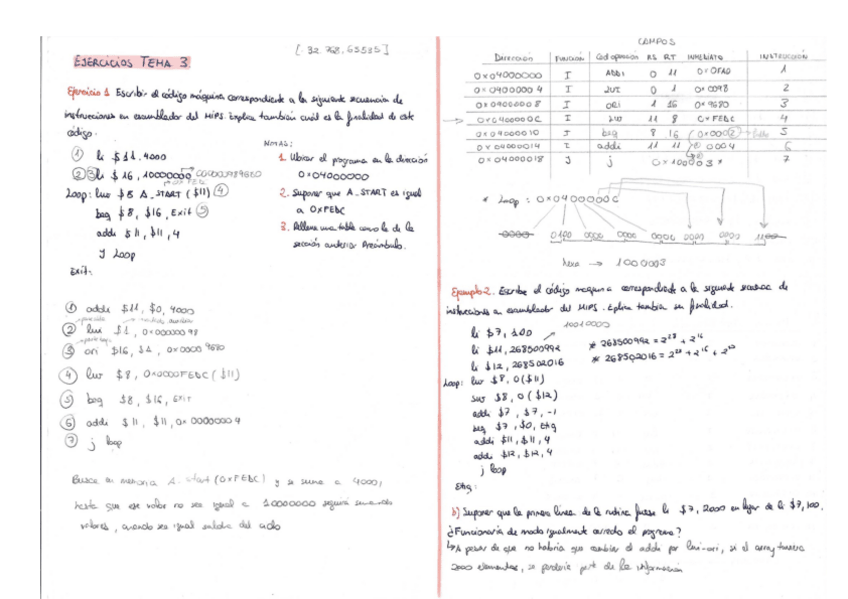 [-32.768, 65535]
EJERCICIOS TEMA 3
Ejercicio 1 Escribir el código máquina correspondiente a la siguiente secuencia de
instrucciones en ensamblador del MIPS. Explica también cuál es la finalidad de este
código.
NOTAS:
① li $11, 4000
②③ li $16, 10000000 0x00989680
Loop: lw $8 A_START ($11) ④
beq $8, $16, Exit ⑤
addi $11, $11, 4
J Loop
Exit:
1. Ubicar el programa en la dirección
0x04000000
2. Suponer que A_START es igual
a 0xFEBC
3. Rellena una tabla como la de la
sección anterior Preámbulo.
① addi $11, $0, 4000
② lui $1, 0x00000098
③ ori $16, $1, 0x00009680
④ lw $8, 0x0000FEBC ($11)
⑤ beq $8, $16, Exit
⑥ addi $11, $11, 0x00000004
⑦ j loop
Busca en memoria A_start (0xFEBC) y se suma a 4000,
hasta que ese valor no sea igual a 10000000 seguirá sumando
valores, cuando sea igual saldrá del ciclo
CAMPOS
Dirección Función Cod operación RS RT INMEDIATO INSTRUCCIÓN
0x04000000 I ADDI 0 11 0x0FA0 1
0x04000004 I LUI 0 1 0x0098 2
0x04000008 I ORI 1 16 0x9680 3
0x0400000C I lw 11 8 0xFEBC 4
0x04000010 I beq 8 16 0x0002 5
0x04000014 I addi 11 11 0x0004 6
0x04000018 J j 0x100003 * 7
* Loop: 0x0400000C
0000 0100 0000 0000 0000 0000 0000 0000 1100
hexa → 1000003
Ejemplo 2. Escribe el código máquina correspondiente a la siguiente secuencia de
instrucciones en ensamblador del MIPS. Explica también su finalidad.
li $7, 100
li $11, 268500992
li $12, 268502016
10010000
* 268500992 = 2²⁸ + 2¹⁶
* 268502016 = 2²⁸ + 2¹⁶ + 2¹⁰
Loop: lw $8, 0($11)
sw $8, 0 ($12)
addi $7, $7, -1
beq $7, $0, Etiq
addi $11, $11, 4
addi $12, $12, 4
j loop
Etiq:
b) Suponer que la primera línea de la rutina fuese li $7, 2000 en lugar de li $7, 100.
¿Funcionaría de modo igualmente correcto el programa?
↳ A pesar de que no habría que cambiar el addi por lui-ori, si el array tuviera
2000 elementos, se perdería parte de la información